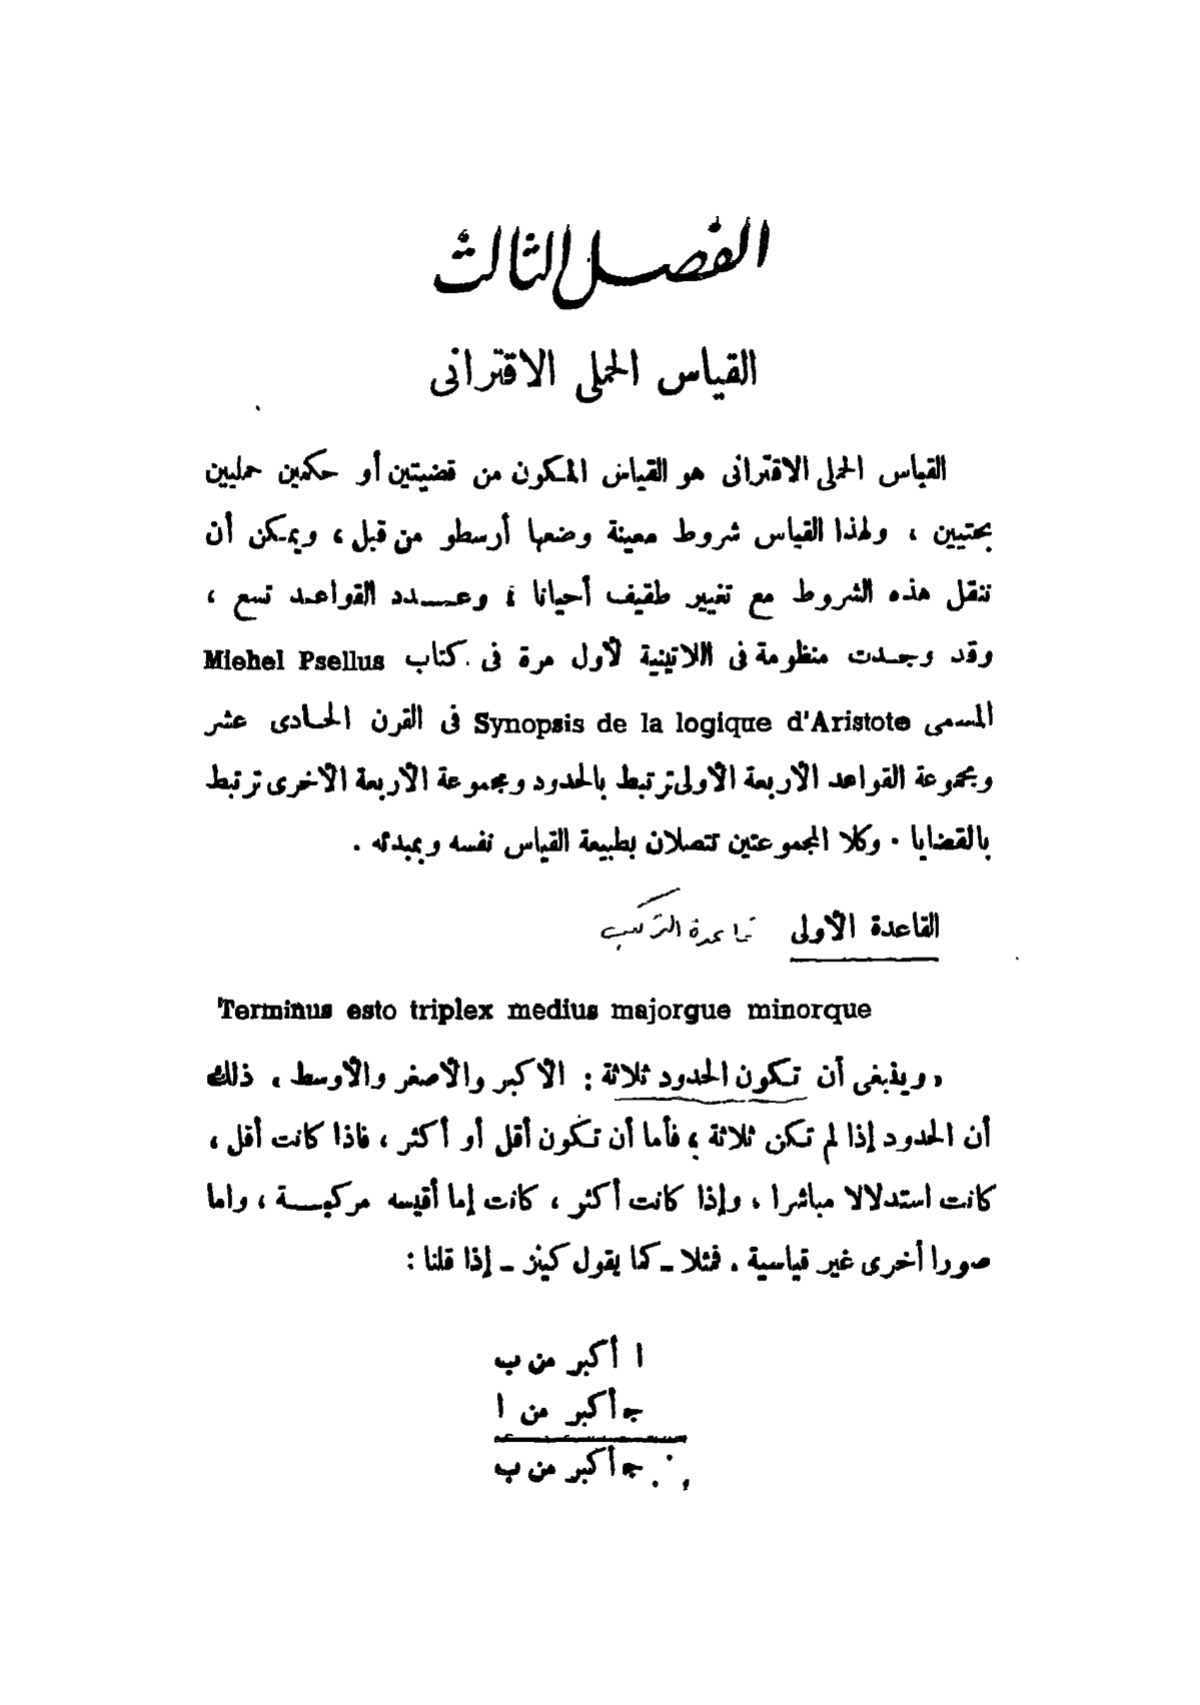 الفصل الثالث
القياس الحملى الاقترانى
القياس الحملى الاقترانى هو القياس المكون من قضيتين أو حكمين حمليين
بحتيين ، ولهذا القياس شروط معينة وضعها أرسطو من قبل ، ويمكن أن
ننقل هذه الشروط مع تغيير طفيف أحيانا ؛ وعـــدد القواعد تسع ،
وقد وجدت منظومة فى اللاتينية لأول مرة فى كتاب Miehel Psellus
المسمى Synopsis de la logique d'Aristote فى القرن الحادى عشر
ومجموعة القواعد الأربعة الأولى ترتبط بالحدود ومجموعة الأربعة الأخرى ترتبط
بالقضايا . وكلا المجموعتين تتصلان بطبيعة القياس نفسه وبمبدئه .
القاعدة الأولى قاعدة التركيب
Terminus esto triplex medius majorgue minorque
« وينبغى أن تكون الحدود ثلاثة : الأكبر والأصغر والأوسط ، ذلك
أن الحدود إذا لم تكن ثلاثة ؛ فأما أن تكون أقل أو أكثر ، فاذا كانت أقل ،
كانت استدلالا مباشرا ، وإذا كانت أكثر ، كانت إما أقيسه مركبـــة ، واما
صورا أخرى غير قياسية . فمثلا ــ كما يقول كينز ــ إذا قلنا :
ا أكبر من ب
جـ أكبر من ا
∴ جـ أكبر من ب